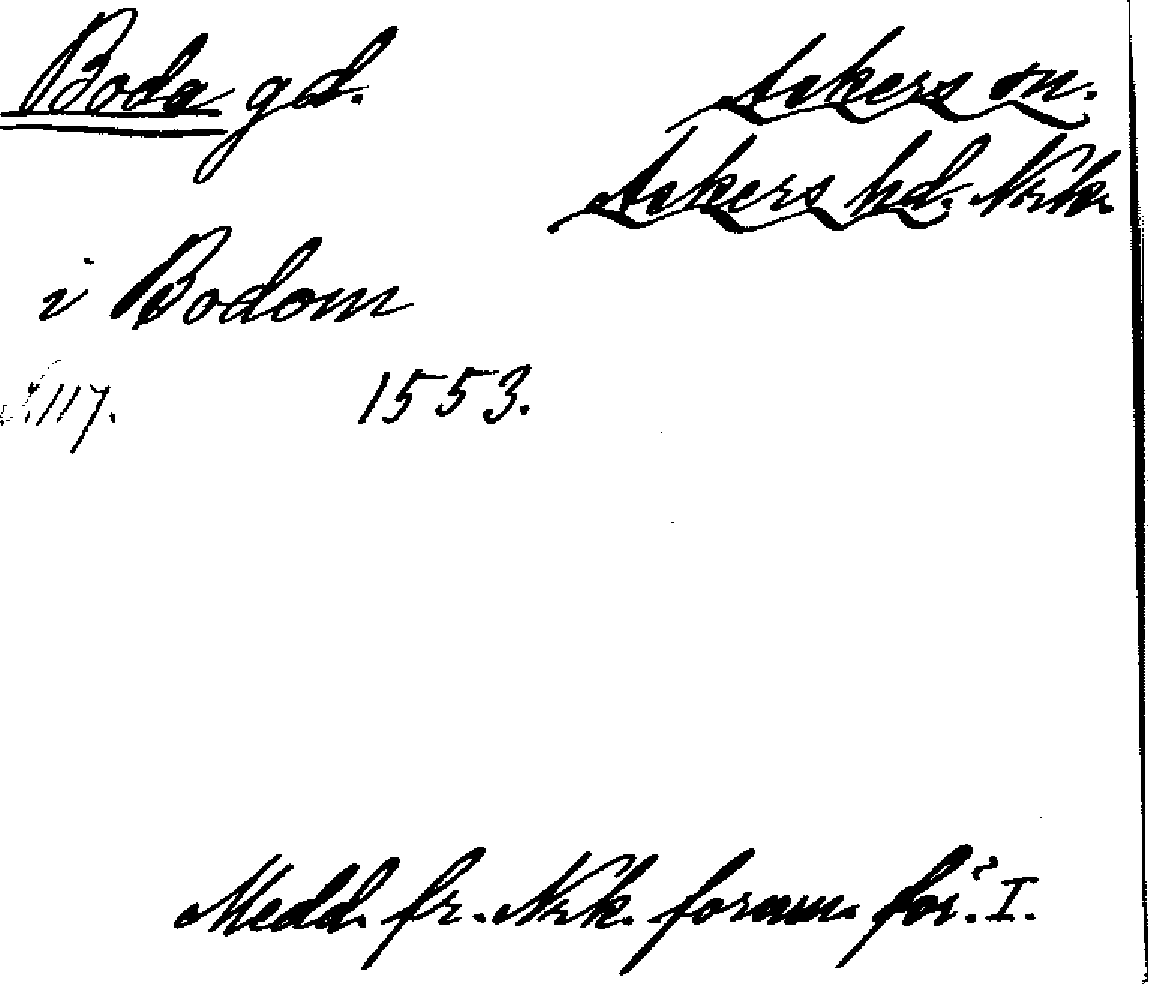 Boda gd.
Askers sn.
Askers hd. Nrk.
i Bodom
s. 117. 1553.
Medd. fr. Nrk. fornm. för. I.